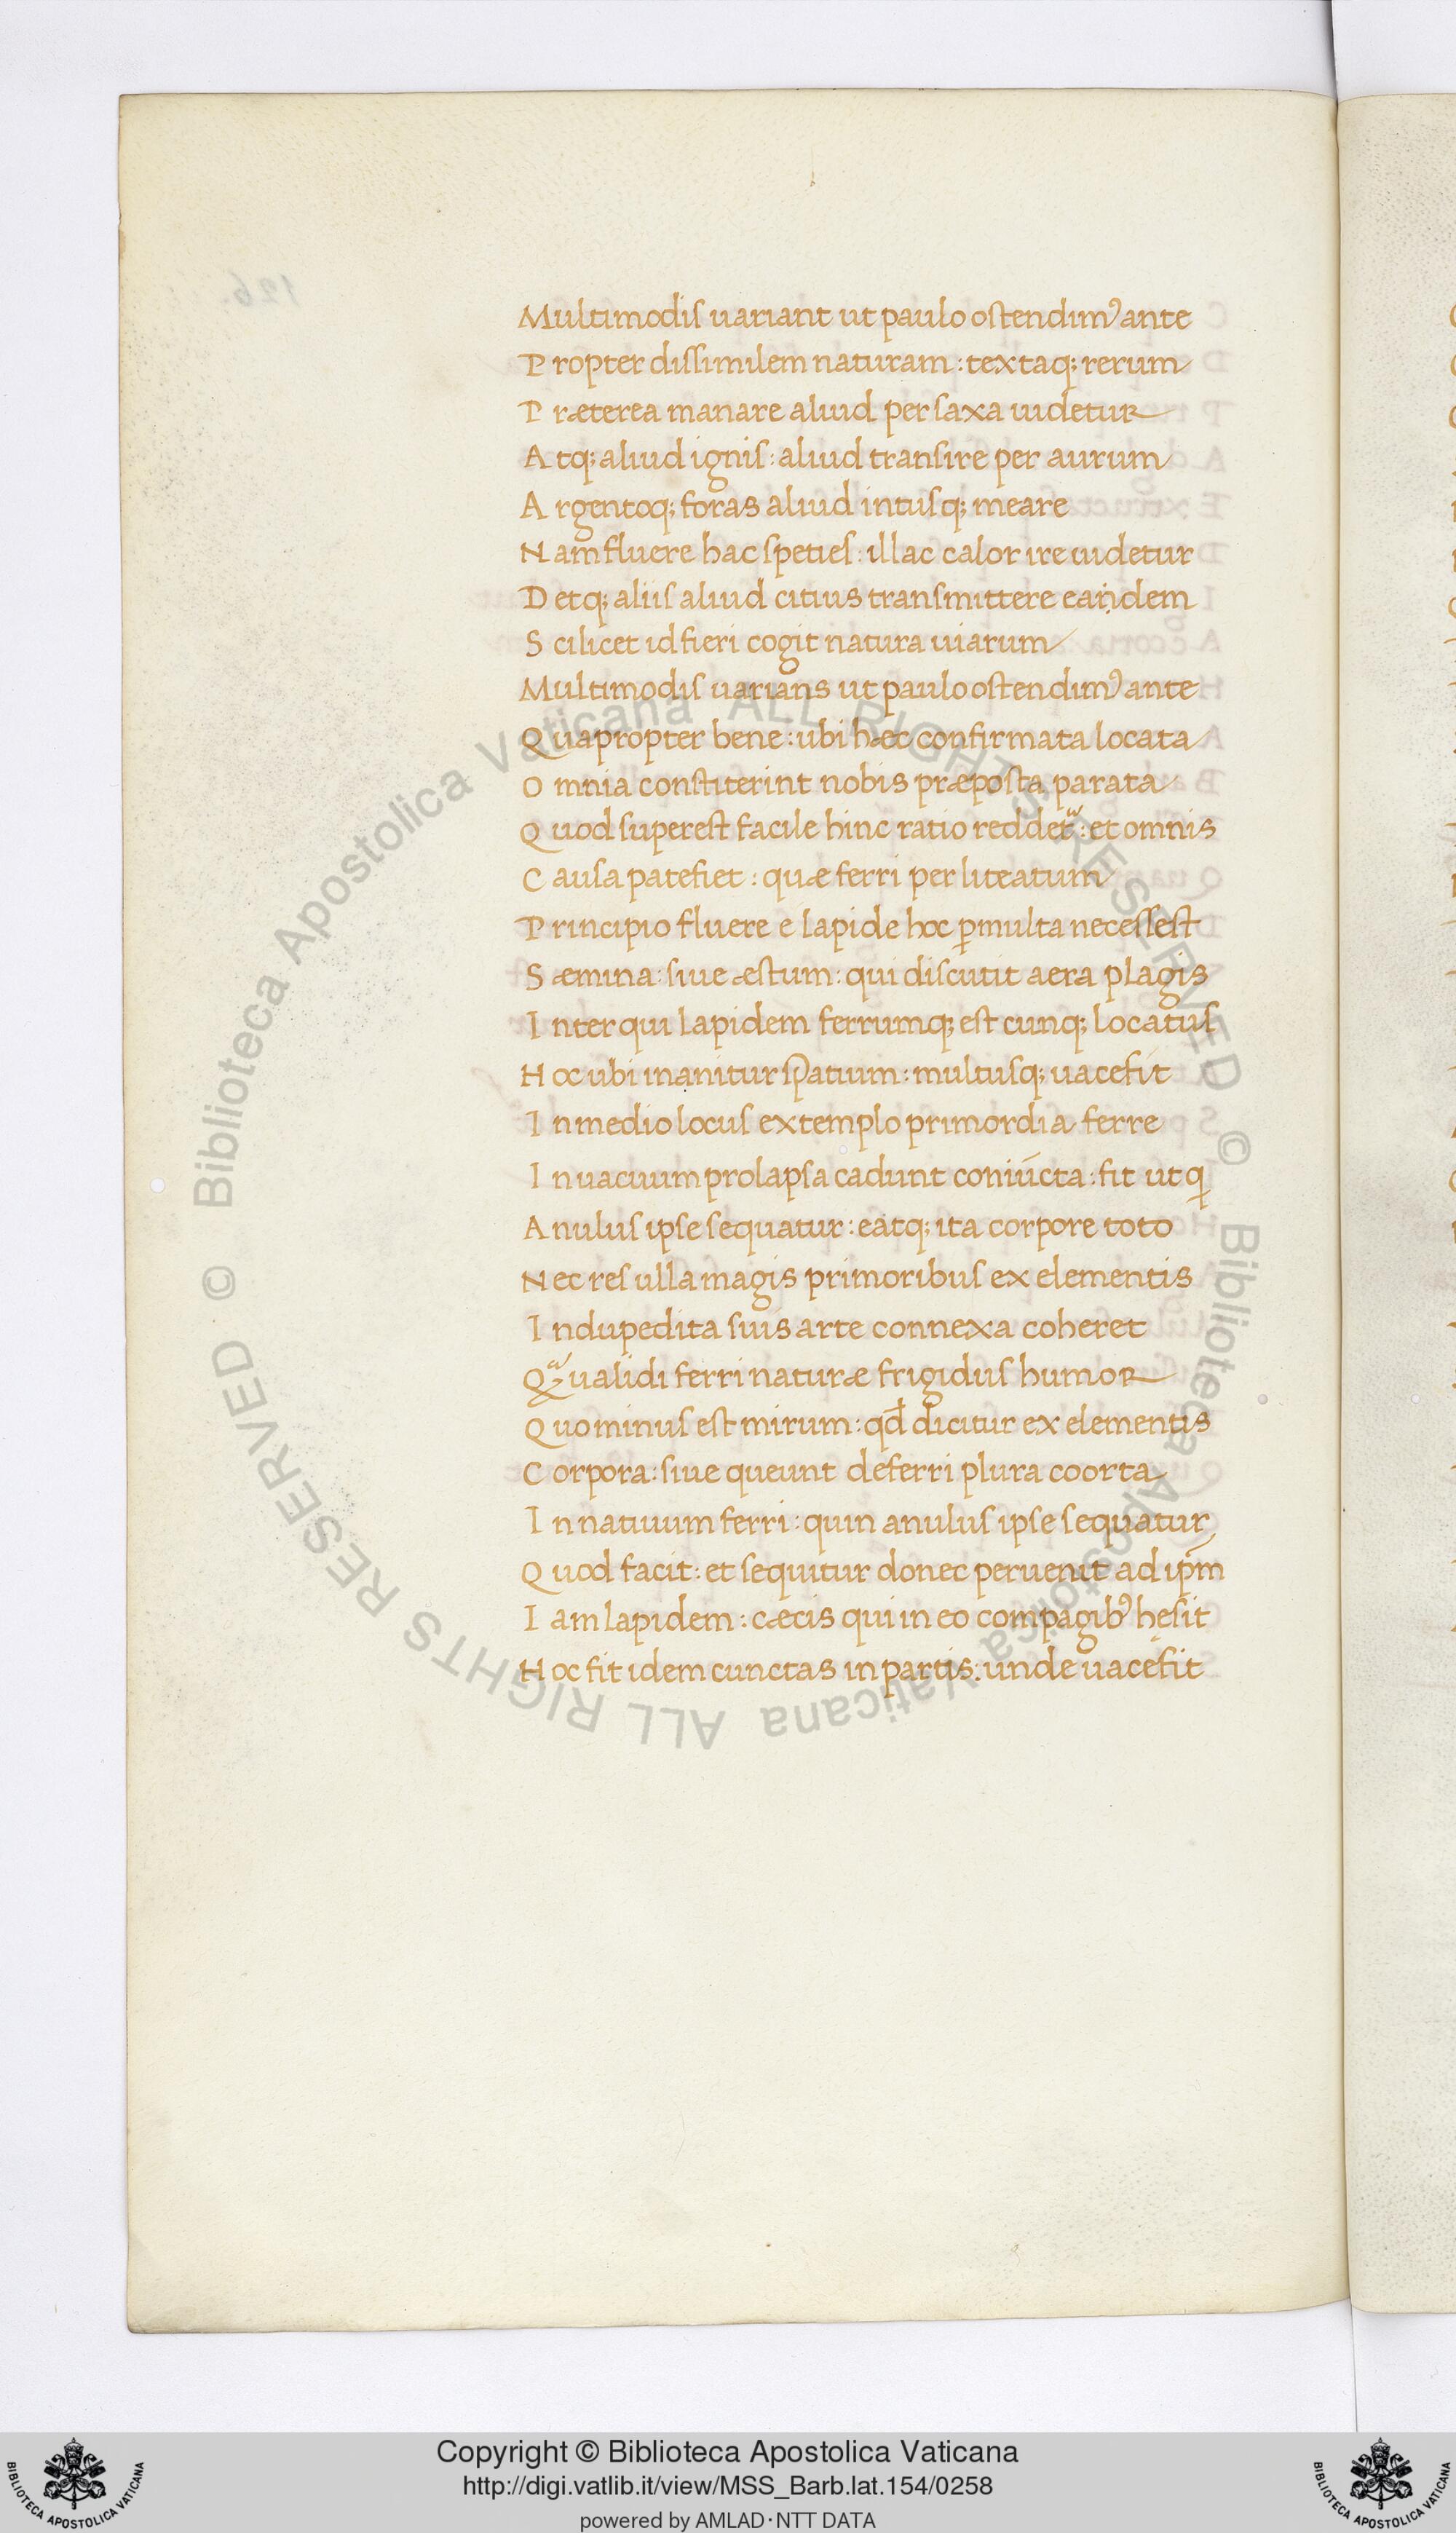 Multimodis uariant ut paulo ostendimꝰ ante
Propter dissimilem naturam : textaq; rerum
Præterea manare aliud per saxa uidetur
Atq; aliud ignis : aliud transire per aurum
Argentoq; foras aliud intusq; meare
Nam fluere hac speties : illac calor ire uidetur
Detq; aliis aliud citius transmittere eandem
Scilicet id fieri cogit natura uiarum
Multimodis uarians ut paulo ostendimꝰ ante
Quapropter bene : ubi hæc confirmata locata
Omnia constiterint nobis præposta parata
Quod superest facile hinc ratio reddet᷑ : et omnis
Causa patefiet : quæ ferri per liteatum
Principio fluere e lapide hoc ꝑmulta necessest
Sæmina : siue æstum : qui discutit aera plagis
Inter qui lapidem ferrumq; est cunq; locatus
Hoc ubi inanitur spatium : multusq; uacefit
In medio locus extemplo primordia ferre
In uacuum prolapsa cadunt coniūcta : fit ut q
Anulus ipse sequatur : eatq; ita corpore toto
Nec res ulla magis primoribus ex elementis
Indupedita suis arte connexa coheret
Qᷓ ualidi ferri naturæ frigidus humor
Quo minus est mirum : qđ dicitur ex elementis
Corpora : siue queunt deferri plura coorta
In natiuum ferri : quin anulus ipse sequatur
Quod facit : et sequitur donec peruenit ad ip̄m
Iam lapidem : cæcis qui in eo compagibꝰ hęsit
Hoc fit idem cunctas in partis : unde uacefit
126.
Biblioteca Apostolica Vaticana ALL RIGHTS RESERVED ©
Biblioteca Apostolica Vaticana ALL RIGHTS RESERVED ©
Copyright © Biblioteca Apostolica Vaticana
http://digi.vatlib.it/view/MSS_Barb.lat.154/0258
powered by AMLAD·NTT DATA
BIBLIOTECA APOSTOLICA VATICANA
BIBLIOTECA APOSTOLICA VATICANA